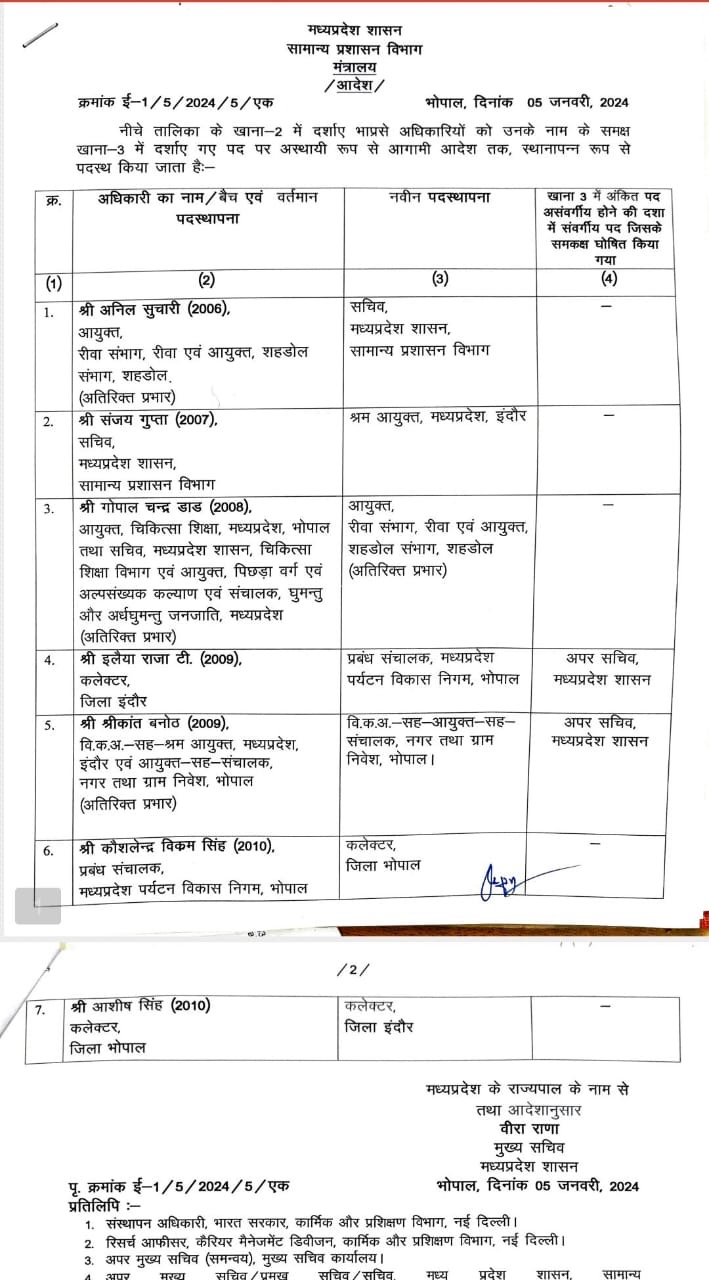 मध्यप्रदेश शासन
सामान्य प्रशासन विभाग
मंत्रालय
/आदेश/
क्रमांक ई–1/5/2024/5/एक भोपाल, दिनांक 05 जनवरी, 2024
नीचे तालिका के खाना–2 में दर्शाए भाप्रसे अधिकारियों को उनके नाम के समक्ष
खाना–3 में दर्शाए गए पद पर अस्थायी रूप से आगामी आदेश तक, स्थानापन्न रूप से
पदस्थ किया जाता हैः–
क्र.
अधिकारी का नाम/बैच एवं वर्तमान
पदस्थापना
नवीन पदस्थापना
खाना 3 में अंकित पद
असंवर्गीय होने की दशा
में संवर्गीय पद जिसके
समकक्ष घोषित किया
गया
(1) (2) (3) (4)
1.
श्री अनिल सुचारी (2006),
आयुक्त,
रीवा संभाग, रीवा एवं आयुक्त, शहडोल
संभाग, शहडोल.
(अतिरिक्त प्रभार)
सचिव,
मध्यप्रदेश शासन,
सामान्य प्रशासन विभाग
–
2.
श्री संजय गुप्ता (2007),
सचिव,
मध्यप्रदेश शासन,
सामान्य प्रशासन विभाग
श्रम आयुक्त, मध्यप्रदेश, इंदौर
–
3.
श्री गोपाल चन्द्र डाड (2008),
आयुक्त, चिकित्सा शिक्षा, मध्यप्रदेश, भोपाल
तथा सचिव, मध्यप्रदेश शासन, चिकित्सा
शिक्षा विभाग एवं आयुक्त, पिछड़ा वर्ग एवं
अल्पसंख्यक कल्याण एवं संचालक, घुमन्तु
और अर्धघुमन्तु जनजाति, मध्यप्रदेश
(अतिरिक्त प्रभार)
आयुक्त,
रीवा संभाग, रीवा एवं आयुक्त,
शहडोल संभाग, शहडोल
(अतिरिक्त प्रभार)
–
4.
श्री इलैया राजा टी. (2009),
कलेक्टर,
जिला इंदौर
प्रबंध संचालक, मध्यप्रदेश
पर्यटन विकास निगम, भोपाल
अपर सचिव,
मध्यप्रदेश शासन
5.
श्री श्रीकांत बनोठ (2009),
वि.क.अ.–सह–श्रम आयुक्त, मध्यप्रदेश,
इंदौर एवं आयुक्त–सह–संचालक,
नगर तथा ग्राम निवेश, भोपाल
(अतिरिक्त प्रभार)
वि.क.अ.–सह–आयुक्त–सह–
संचालक, नगर तथा ग्राम
निवेश, भोपाल।
अपर सचिव,
मध्यप्रदेश शासन
6.
श्री कौशलेन्द्र विकम सिंह (2010),
प्रबंध संचालक,
मध्यप्रदेश पर्यटन विकास निगम, भोपाल
कलेक्टर,
जिला भोपाल
–
/2/
7.
श्री आशीष सिंह (2010)
कलेक्टर,
जिला भोपाल
कलेक्टर,
जिला इंदौर
–
मध्यप्रदेश के राज्यपाल के नाम से
तथा आदेशानुसार
वीरा राणा
मुख्य सचिव
मध्यप्रदेश शासन
पृ. क्रमांक ई–1/5/2024/5/एक भोपाल, दिनांक 05 जनवरी, 2024
प्रतिलिपि :–
1. संस्थापन अधिकारी, भारत सरकार, कार्मिक और प्रशिक्षण विभाग, नई दिल्ली।
2. रिसर्च आफीसर, कैरियर मैनेजमेंट डिवीजन, कार्मिक और प्रशिक्षण विभाग, नई दिल्ली।
3. अपर मुख्य सचिव (समन्वय), मुख्य सचिव कार्यालय।
4. अपर मुख्य सचिव/प्रमुख सचिव/सचिव, मध्य प्रदेश शासन, सामान्य